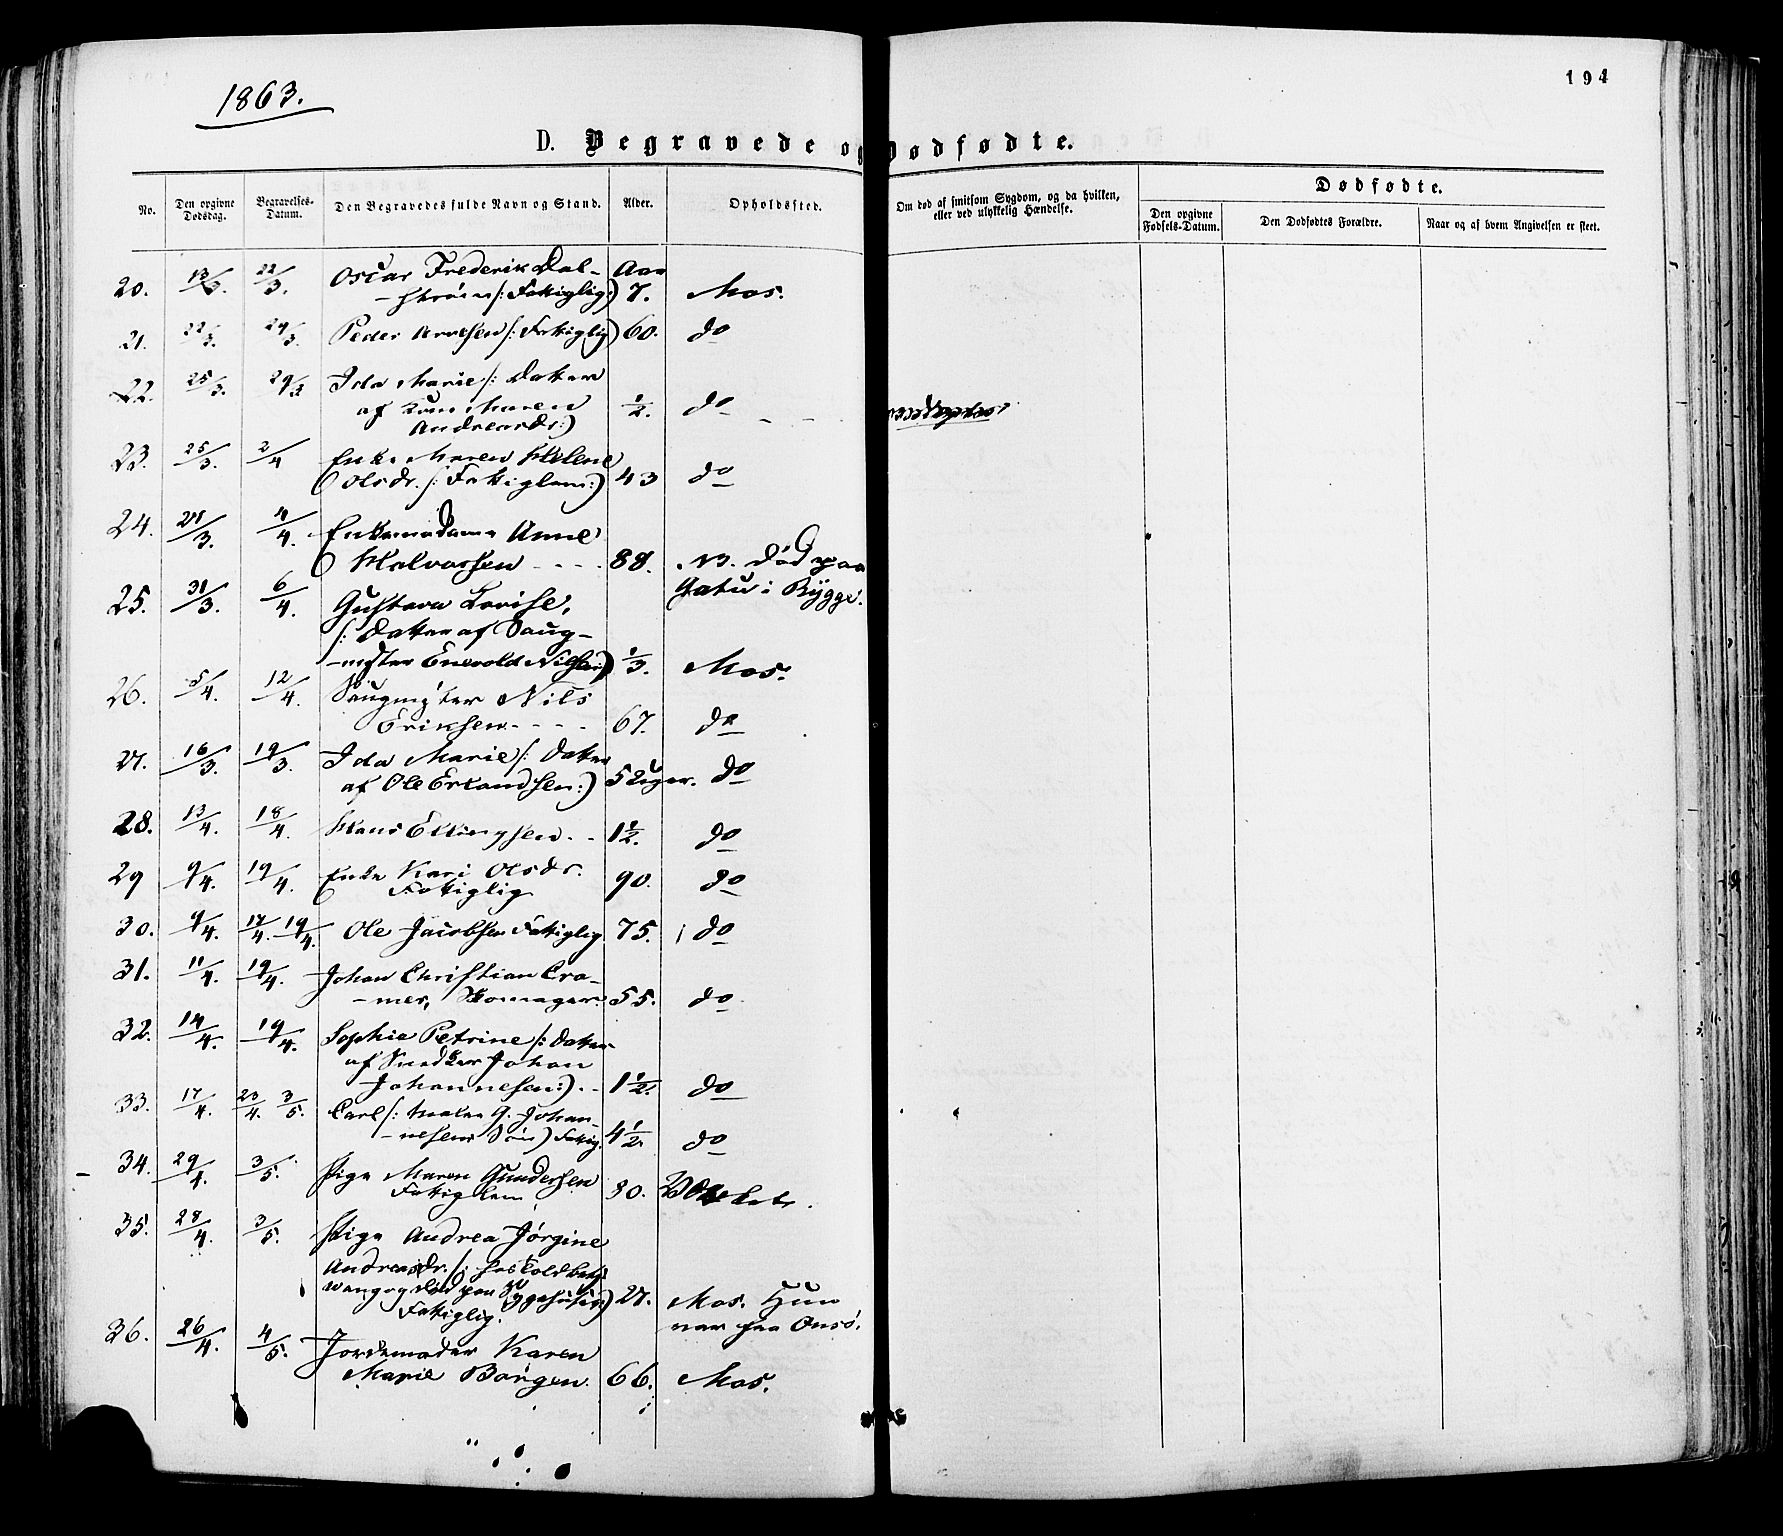 1863.
194
D. Begravede og Dødfødte.
No.
Den opgivne Dødsdag.
Begravelses-Datum.
Den Begravedes fulde Navn og Stand.
Alder.
Opholdssted.
Om død af smitsom Sygdom, og da hvilken, eller ved ulykkelig Hændelse.
Dødfødte.
Den opgivne Fødsels-Datum.
Den Dødfødtes Forældre.
Naar og af hvem Angivelsen er skeet.
20. 13/3. 22/3. Oscar Frederik Dal- Aar
-strøm /: Fattiglig :) 7. Mos.
21. 22/3. 29/3. Peder /: Fattiglig 60. do
22. 25/3. 29/3 Ida Marie /: Datter
af Maren 1/2. do
Andreasdr :)
23. 25/3. 2/4 Enke Maren Helene
Olsdr. /: Fattiglem :) 43 do
24. 4/4. Enkemadame Anne
Halvorsen - - - 88. NB. død paa
25. 31/3. 6/4. Gustava Lovise, i Rygge.
/: datter af Saug-
-mester Enevold Nilsen :) 1/3. Mos.
26. 5/4. 12/4. Saugmester Nils
Eriksen - - - 67. do
27. 16/3. 19/3. Ida Marie /: Datter
af Ole Erlandsen :) 5 Uger. do
28. 13/4. 18/4. Hans Ellingsen. - 1 1/2. do
29 9/4. 19/4. Enke Kari Olsdr.
Fattiglig 90. do
30. 9/4. 17/4. 19/4. Ole Jacobsen Fattiglig 75. do
31. 11/4. 19/4. Johan Christian Cra-
-mer, Skomager. 55. do
32. 14/4. 19/4. Sophie Petrine /: Datter
af Snedker Johan
Johannesen :). - 1 1/2. do
33. 17/4. 23/4. 3/5. Carl /: Maler G. Johan-
-nesens Søn) Fattig. 4 1/2. do
34. 29/4. 3/5. Pige Maren Gundersen
Fattiglem 30.
35. 28/4. 3/5. Pige Andrea Jørgine
Andreasdr. /:
og død paa Sygehuset) 27. Mos. Hun
Fattiglig. var fra Onsö.
36. 26/4. 4/5. Jordemoder Karen
Marie Børgen. 66. Mos.